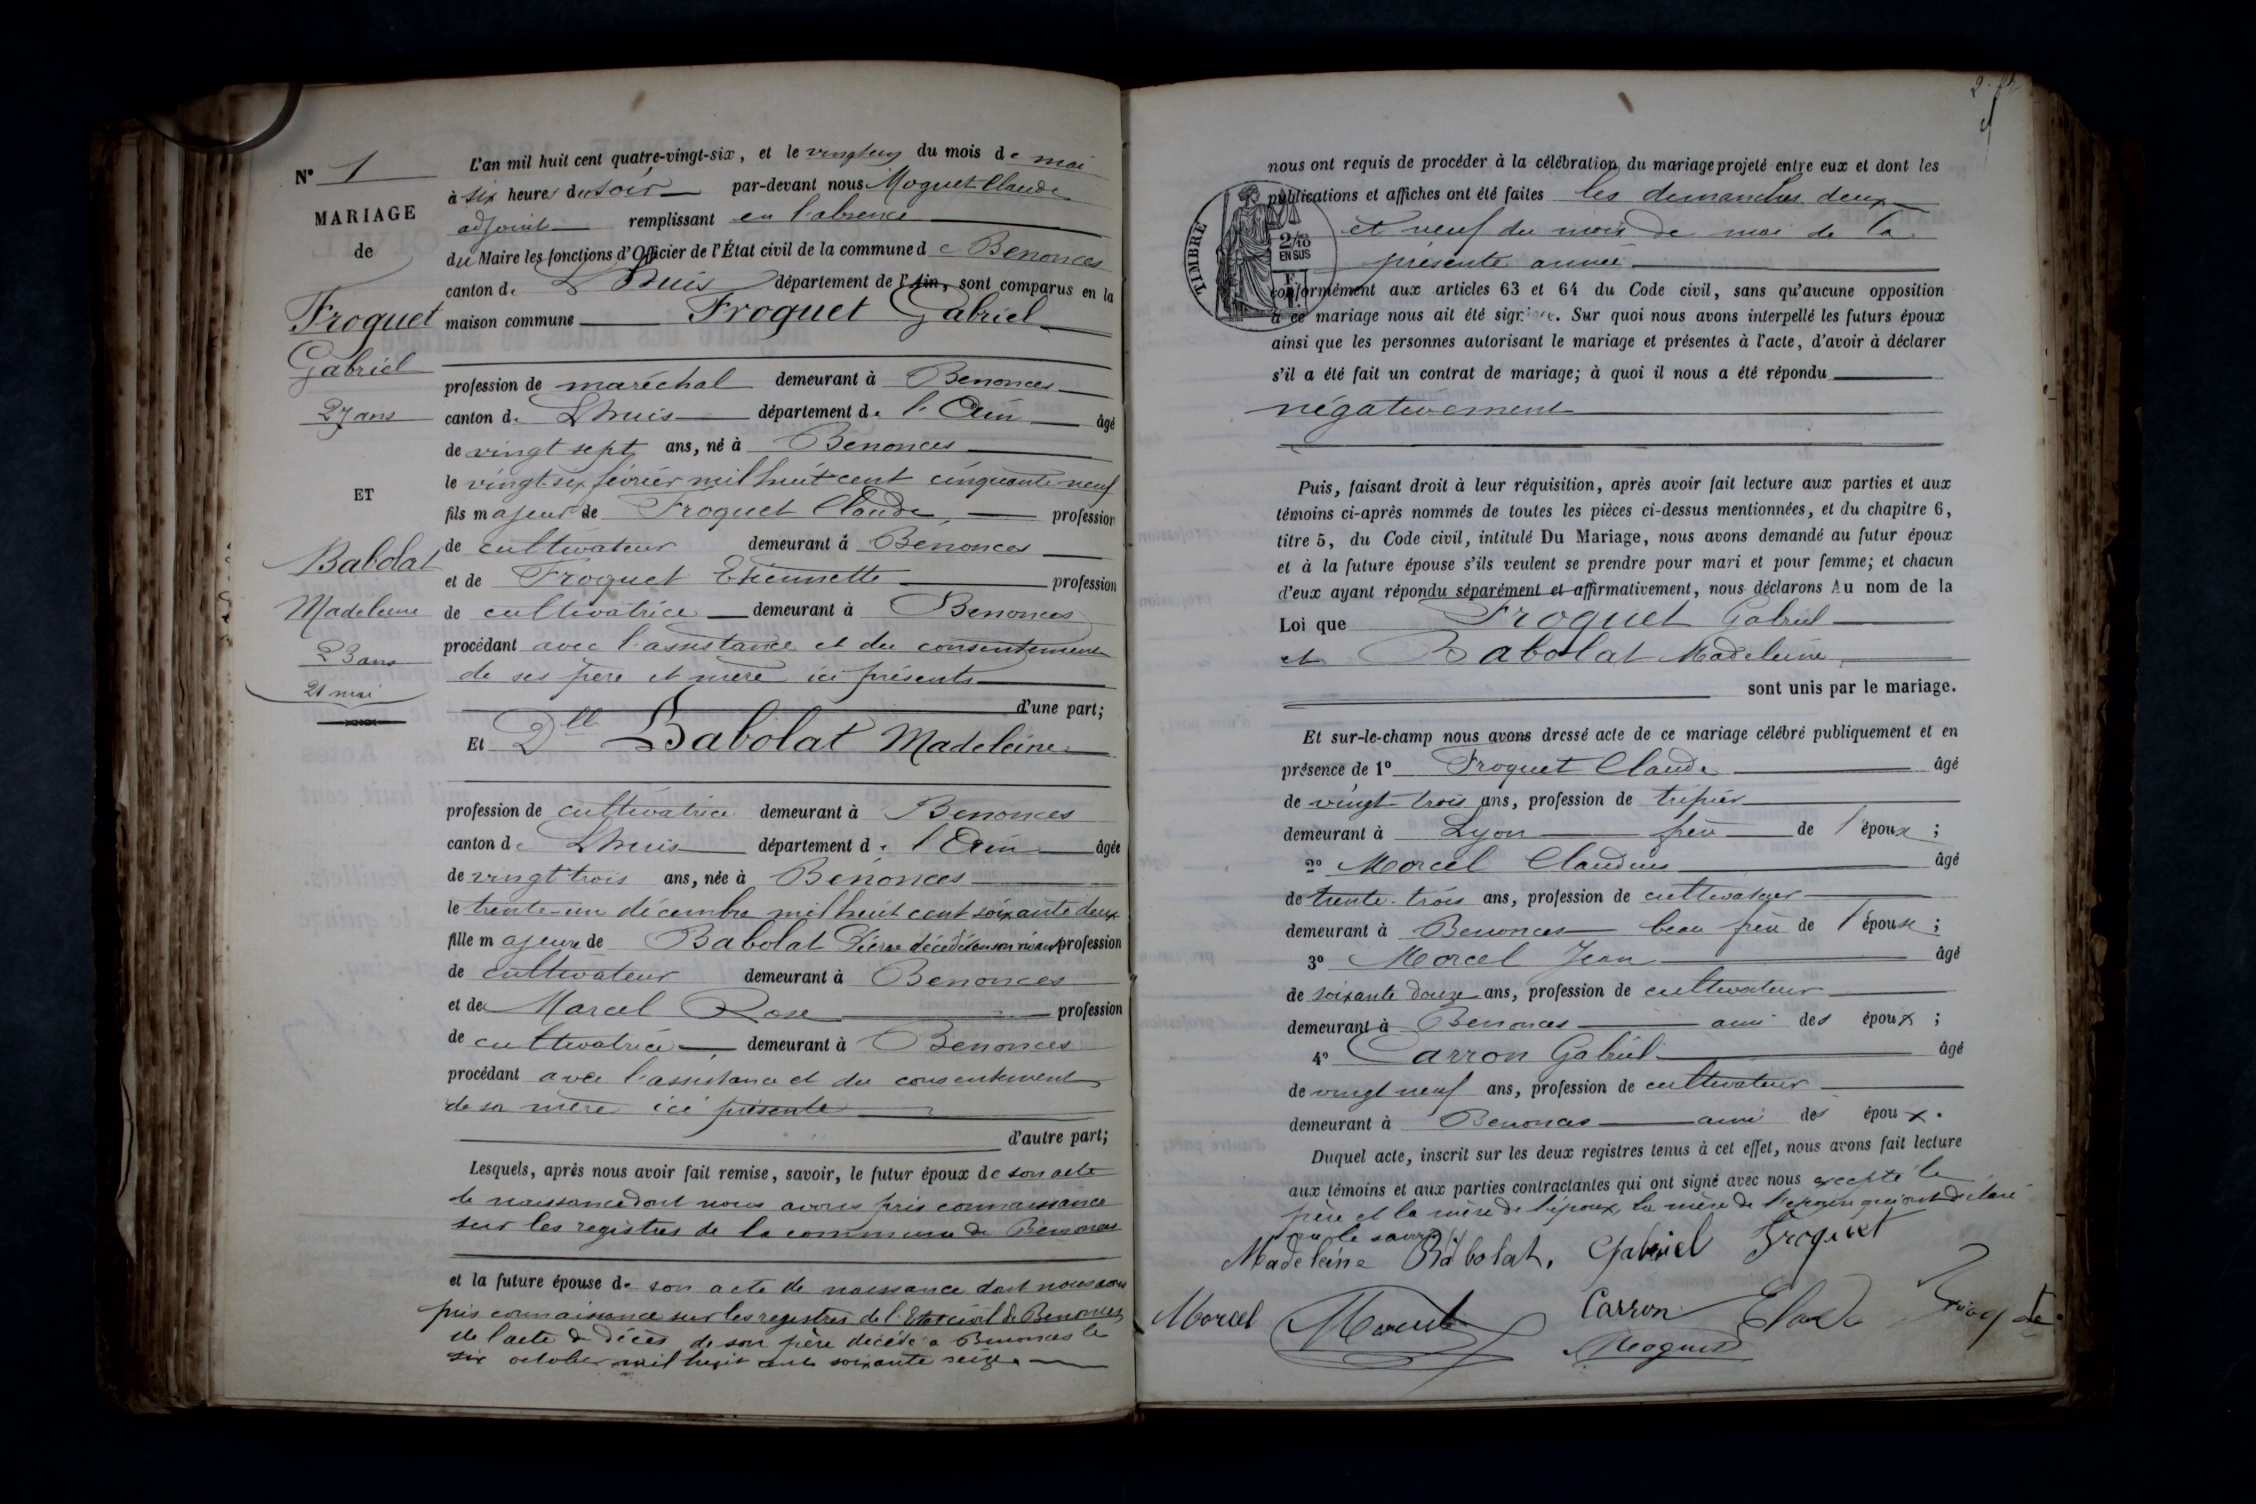 N° 1
MARIAGE
de
Froquet
Gabriel
27 ans
ET
Babolat
Madeleine
23 ans
21 mai
L'an mil huit cent quatre-vingt-six, et le du mois de mai
à six heures du soir par-devant nous Moguet Claude
adjoint remplissant en l'absence
du Maire les fonctions d'Officier de l'État civil de la commune de Benonces
canton de Lhuis département de l'Ain, sont comparus en la
maison commune Froquet Gabriel
profession de maréchal demeurant à Benonces
canton de Lhuis département de l'Ain âgé
de vingt sept ans, né à Benonces
le vingt-six février mil huit cent cinquante neuf
fils majeur de Froquet Claude profession
de cultivateur demeurant à Benonces
et de Froquet Etiennette profession
de cultivatrice demeurant à Benonces
procédant avec l'assistance et du consentement
de ses père et mère ici présents
d'une part;
Et Dlle Babolat Madeleine
profession de cultivatrice demeurant à Benonces
canton de Lhuis département de l'Ain âgée
de vingt trois ans, née à Benonces
le trente-un décembre mil huit cent soixante deux
fille majeure de Babolat Pierre décédé en son vivant profession
de cultivateur demeurant à Benonces
et de Marcel Rose profession
de cultivatrice demeurant à Benonces
procédant avec l'assistance et du consentement
de sa mère ici présente
d'autre part;
Lesquels, après nous avoir fait remise, savoir, le futur époux de son acte
de naissance dont nous avons pris connaissance
sur les registres de la commune de Benonces
et la future épouse de son acte de naissance dont nous avons
pris connaissance sur les registres de l'Etat civil de Benonces
de l'acte de décès de son père décédé à Benonces le
six octobre mil huit cent soixante seize
nous ont requis de procéder à la célébration du mariage projeté entre eux et dont les
publications et affiches ont été faites les dimanches deux
et neuf du mois de mai de la
présente année
conformément aux articles 63 et 64 du Code civil, sans qu'aucune opposition
à ce mariage nous ait été signifiée. Sur quoi nous avons interpellé les futurs époux
ainsi que les personnes autorisant le mariage et présentes à l'acte, d'avoir à déclarer
s'il a été fait un contrat de mariage; à quoi il nous a été répondu
négativement
TIMBRE
2/10
EN SUS
Puis, faisant droit à leur réquisition, après avoir fait lecture aux parties et aux
témoins ci-après nommés de toutes les pièces ci-dessus mentionnées, et du chapitre 6,
titre 5, du Code civil, intitulé Du Mariage, nous avons demandé au futur époux
et à la future épouse s'ils veulent se prendre pour mari et pour femme; et chacun
d'eux ayant répondu séparément et affirmativement, nous déclarons Au nom de la
Loi que Froquet Gabriel
et Babolat Madeleine
sont unis par le mariage.
Et sur-le-champ nous avons dressé acte de ce mariage célébré publiquement et en
présence de 1° Froquet Claude âgé
de vingt trois ans, profession de
demeurant à Lyon frère de l'époux ;
2° Morcel Claudius âgé
de trente-trois ans, profession de cultivateur
demeurant à Benonces beau frère de l'épouse ;
3° Morcel Jean âgé
de soixante douze ans, profession de cultivateur
demeurant à Benonces ami des époux ;
4° Carron Gabriel âgé
de vingt neuf ans, profession de cultivateur
demeurant à Benonces ami des époux.
Duquel acte, inscrit sur les deux registres tenus à cet effet, nous avons fait lecture
aux témoins et aux parties contractantes qui ont signé avec nous excepté le
père et la mère de l'époux, la mère de l'épouse qui ont déclaré
ne le savoir
Madeleine Babolat. Gabriel Froquet
Morcel Carron Claude
Moguet